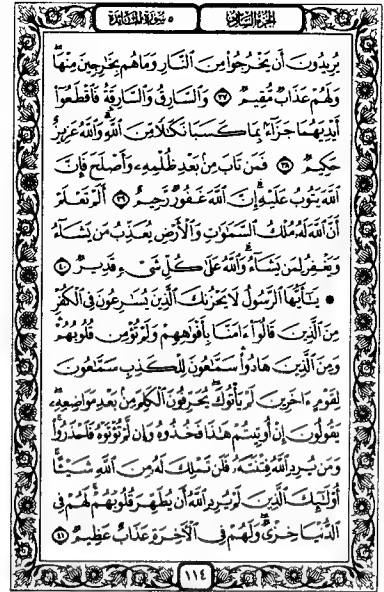 الجزء السادس
٥ سورة المائدة
يُرِيدُونَ أَن يَخْرُجُوا۟ مِنَ ٱلنَّارِ وَمَا هُم بِخَٰرِجِينَ مِنْهَا ۖ
وَلَهُمْ عَذَابٌ مُّقِيمٌ ٣٧ وَٱلسَّارِقُ وَٱلسَّارِقَةُ فَٱقْطَعُوٓا۟
أَيْدِيَهُمَا جَزَآءًۢ بِمَا كَسَبَا نَكَٰلًا مِّنَ ٱللَّهِ ۗ وَٱللَّهُ عَزِيزٌ
حَكِيمٌ ٣٨ فَمَن تَابَ مِنۢ بَعْدِ ظُلْمِهِۦ وَأَصْلَحَ فَإِنَّ
ٱللَّهَ يَتُوبُ عَلَيْهِ ۗ إِنَّ ٱللَّهَ غَفُورٌ رَّحِيمٌ ٣٩ أَلَمْ تَعْلَمْ
أَنَّ ٱللَّهَ لَهُۥ مُلْكُ ٱلسَّمَٰوَٰتِ وَٱلْأَرْضِ يُعَذِّبُ مَن يَشَآءُ
وَيَغْفِرُ لِمَن يَشَآءُ ۗ وَٱللَّهُ عَلَىٰ كُلِّ شَىْءٍ قَدِيرٌ ٤٠
يَٰٓأَيُّهَا ٱلرَّسُولُ لَا يَحْزُنكَ ٱلَّذِينَ يُسَٰرِعُونَ فِى ٱلْكُفْرِ
مِنَ ٱلَّذِينَ قَالُوٓا۟ ءَامَنَّا بِأَفْوَٰهِهِمْ وَلَمْ تُؤْمِن قُلُوبُهُمْ ۛ
وَمِنَ ٱلَّذِينَ هَادُوا۟ ۛ سَمَّٰعُونَ لِلْكَذِبِ سَمَّٰعُونَ
لِقَوْمٍ ءَاخَرِينَ لَمْ يَأْتُوكَ ۖ يُحَرِّفُونَ ٱلْكَلِمَ مِنۢ بَعْدِ مَوَاضِعِهِۦ ۖ
يَقُولُونَ إِنْ أُوتِيتُمْ هَٰذَا فَخُذُوهُ وَإِن لَّمْ تُؤْتَوْهُ فَٱحْذَرُوا۟ ۚ
وَمَن يُرِدِ ٱللَّهُ فِتْنَتَهُۥ فَلَن تَمْلِكَ لَهُۥ مِنَ ٱللَّهِ شَيْـًٔا ۚ
أُو۟لَٰٓئِكَ ٱلَّذِينَ لَمْ يُرِدِ ٱللَّهُ أَن يُطَهِّرَ قُلُوبَهُمْ ۚ لَهُمْ فِى
ٱلدُّنْيَا خِزْىٌ ۖ وَلَهُمْ فِى ٱلْءَاخِرَةِ عَذَابٌ عَظِيمٌ ٤١
١١٤